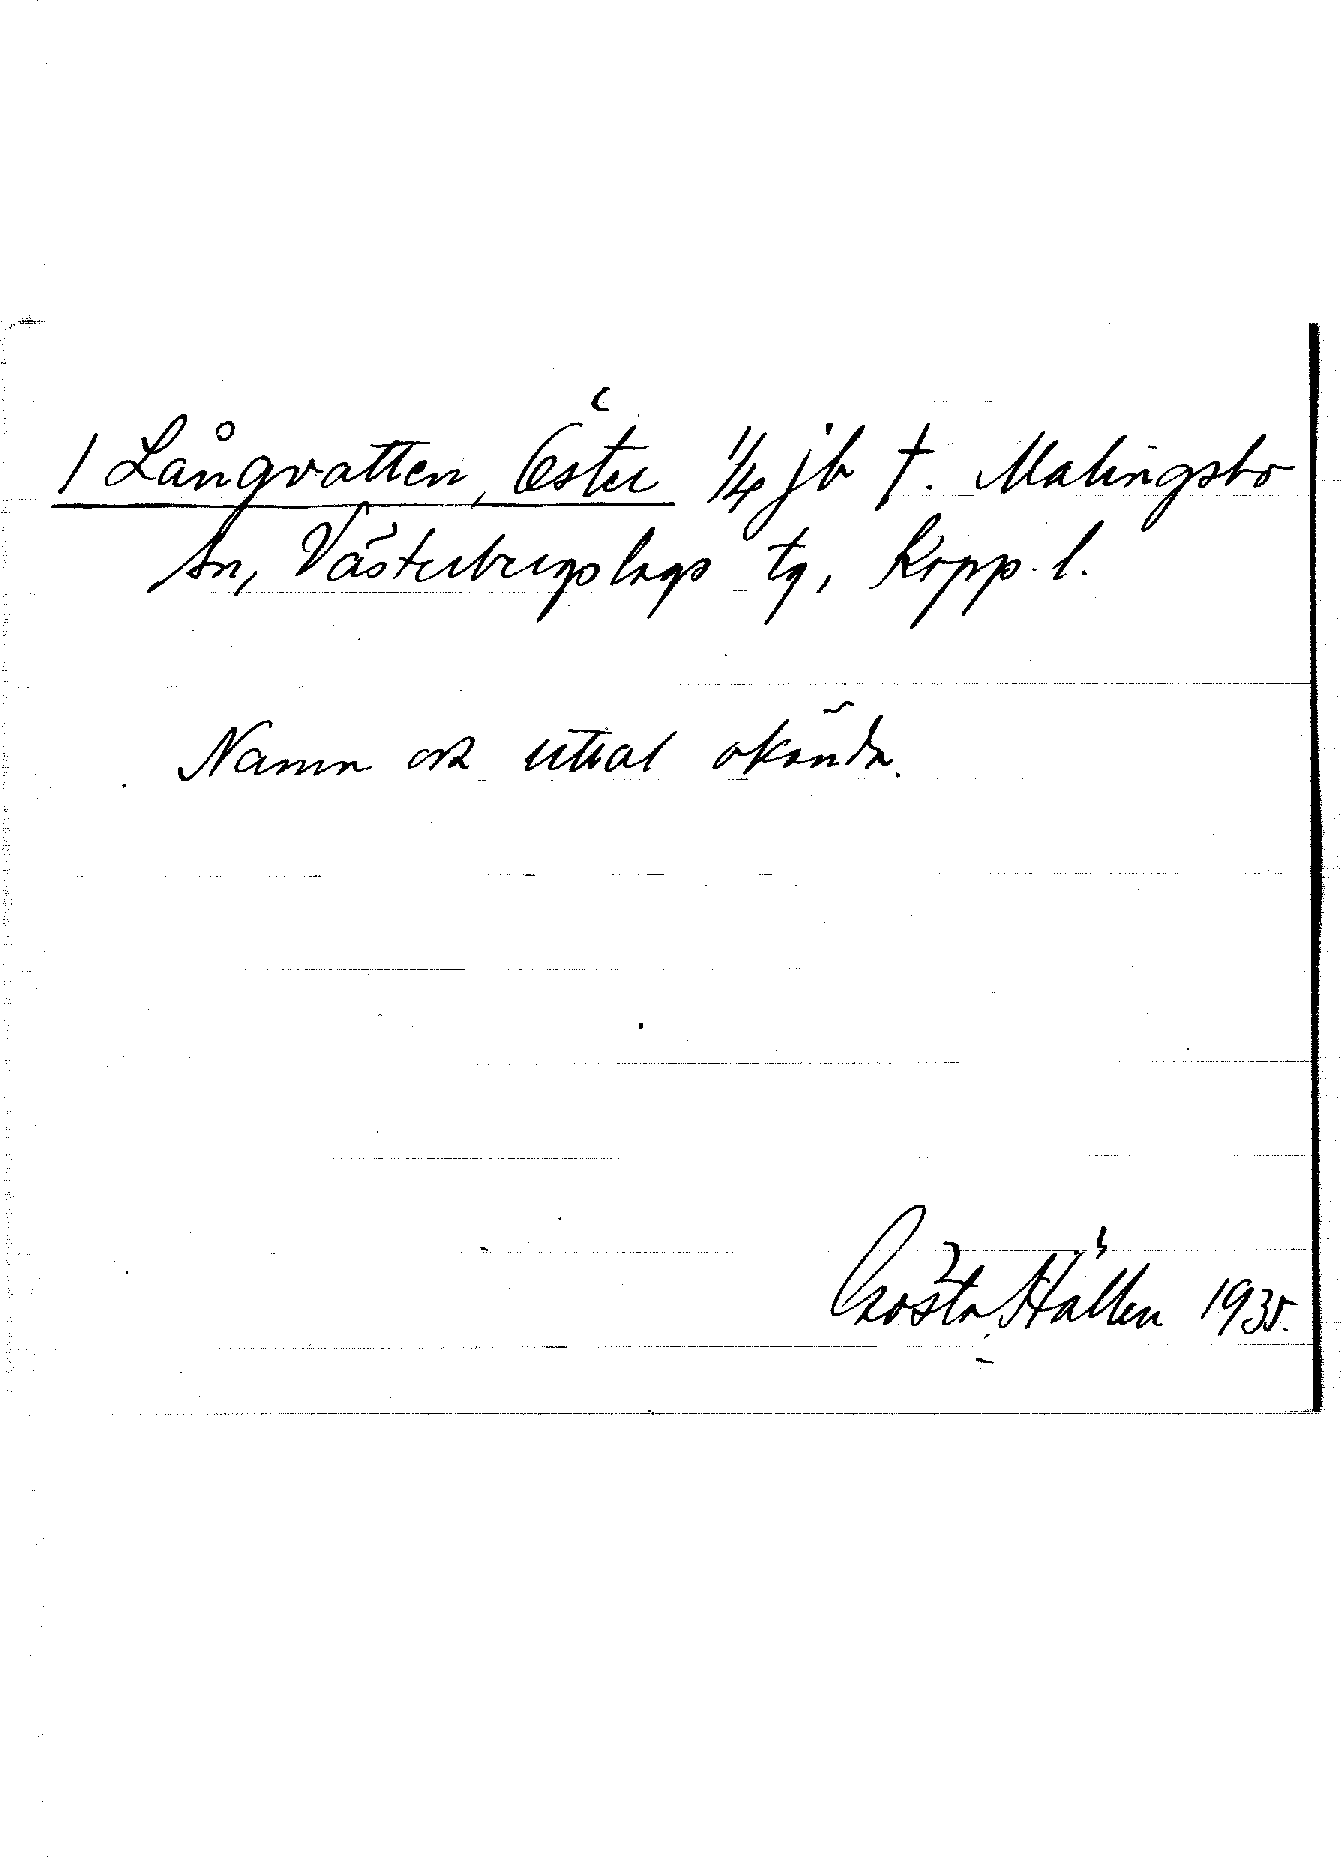 / Långvatten, Öster 1/4 jb †. Malingsbo
sn, Västerbergslags tg, Kopp. l.
Namn och uttal okända.
Gösta Hallén 1935.